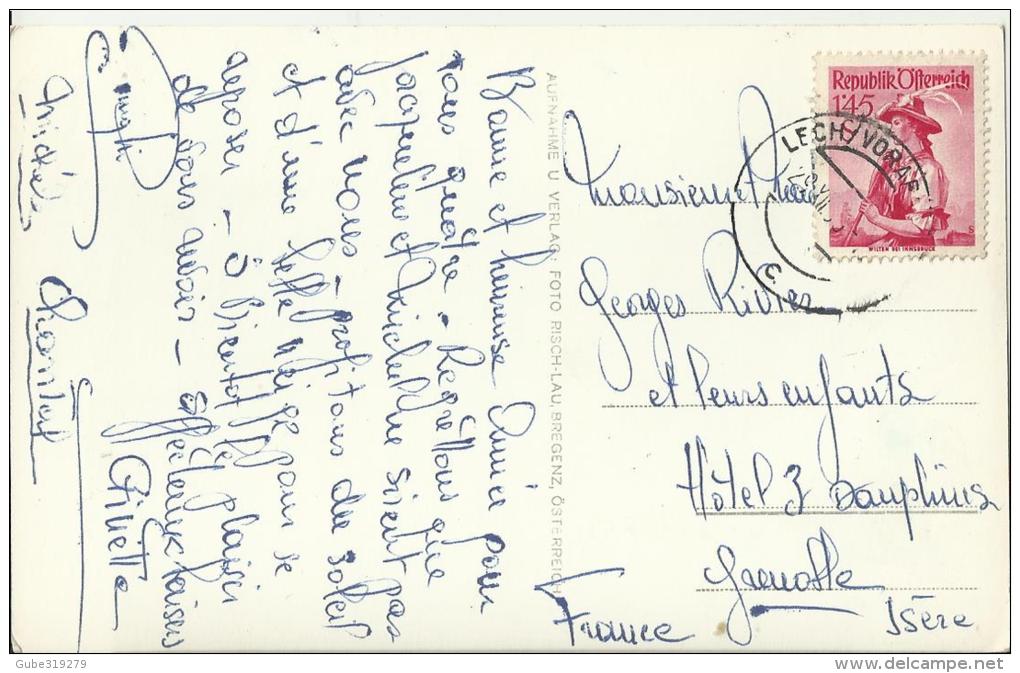 Bonne et heureuse Année pour
tous quatre - Regrettons que
Jacqueline et soient pas
avec nous - profitons du soleil
et d'une belle neige pour se
reposer - à bientôt le plaisir
de vous revoir - affectueux baisers
Ginette
Chantal
Michel
AUFNAHME U VERLAG: FOTO RISCH-LAU, BREGENZ, ÖSTERREICH
Republik Österreich
1'45
WILTEN BEI INNSBRUCK
LECH/VORARL
Monsieur
Georges Rivier
et leurs enfants
Hôtel 3 Dauphins
Grenoble
Isère
France
Gube319279
www.delcampe.net